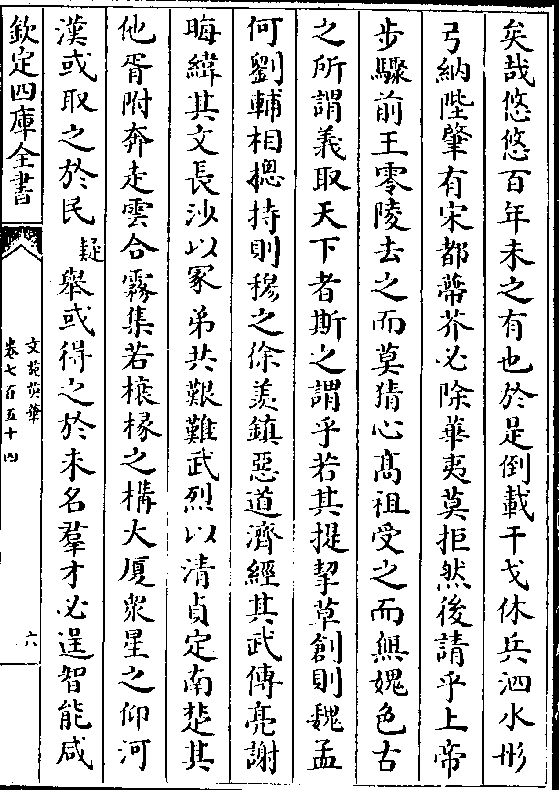 矣哉悠悠百年未之有也於是倒載干戈休兵泗水彤
弓納陛肇有宋都蔕芥必除華夷莫拒然後請乎上帝
步驟前王零陵去之而莫猜心髙祖受之而無媿色古
之所謂義取天下者斯之謂乎若其提挈草創則魏孟
何劉輔相揔持則穆之徐羨鎮惡道濟經其武傅亮謝
晦緯其文長沙以冢弟共艱難武烈以清貞定南楚其
他胥附奔走雲合霧集若榱椽之構大厦衆星之仰河
漢或取之於民疑舉或得之於未名羣才必逞智能咸
欽定四庫全書
文苑英華
卷七百五十四
六